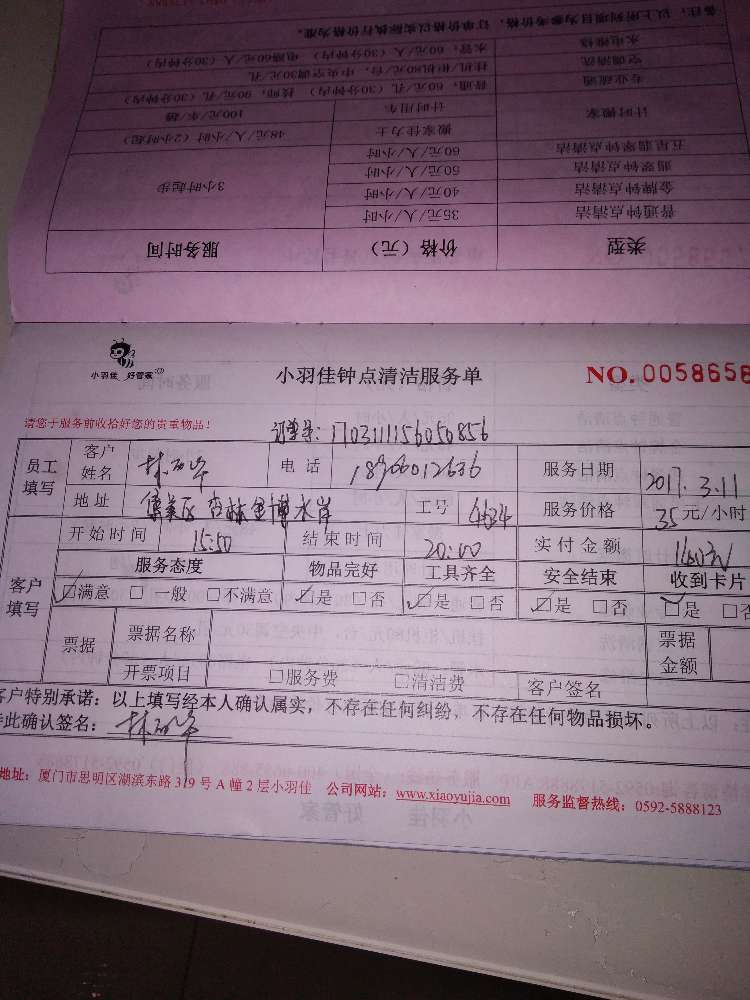 备注：以上所列项目为参考价格，订单价格以实际执行价格为准。
水电维修 水管：60元/人（30分钟内） 电路60元/人（30分钟内）
空调清洗 挂机/柜机80元/台，中央空调30元/孔
专业疏通 普通：60元/孔（30分钟内） 技师：90元/孔（30分钟内）
计时搬家 计时用车 100元/车/趟
搬家佳力士 48元/人/小时（2小时起）
五星翡翠钟点清洁 60元/人/小时
翡翠钟点清洁 50元/人/小时 3小时起步
金牌钟点清洁 40元/人/小时
普通钟点清洁 35元/人/小时
类型 价格（元） 服务时间
小羽佳 好管家
小羽佳钟点清洁服务单
NO. 0058658
请您于服务前收拾好您的贵重物品！
订单号：1703111156050856
员工填写 客户姓名 电话 18906012636 服务日期 2017.3.11
地址 集美区杏林金博水岸 工号 4634 服务价格 35元/小时
客户填写 开始时间 15:50 结束时间 20:00 实付金额
服务态度 物品完好 工具齐全 安全结束 收到卡片
☑满意 □一般 □不满意 ☑是 □否 ☑是 □否 ☑是 □否 ☑是 □否
票据 票据名称 票据金额
开票项目 □服务费 □清洁费 客户签名
客户特别承诺：以上填写经本人确认属实，不存在任何纠纷，不存在任何物品损坏。
特此确认签名：
地址：厦门市思明区湖滨东路319号A幢2层小羽佳 公司网站：www.xiaoyujia.com 服务监督热线：0592-5888123